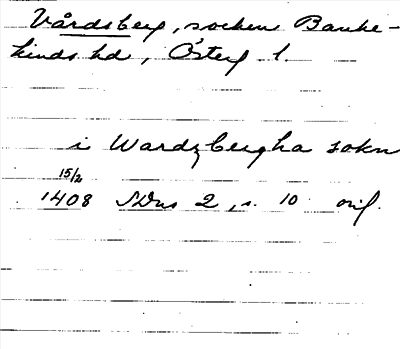 Vårdsberg, socken Banke-
kinds hd, Österg l.
i Wardzbergha sokn
15/2
1408 SDns 2, s. 10 orig.